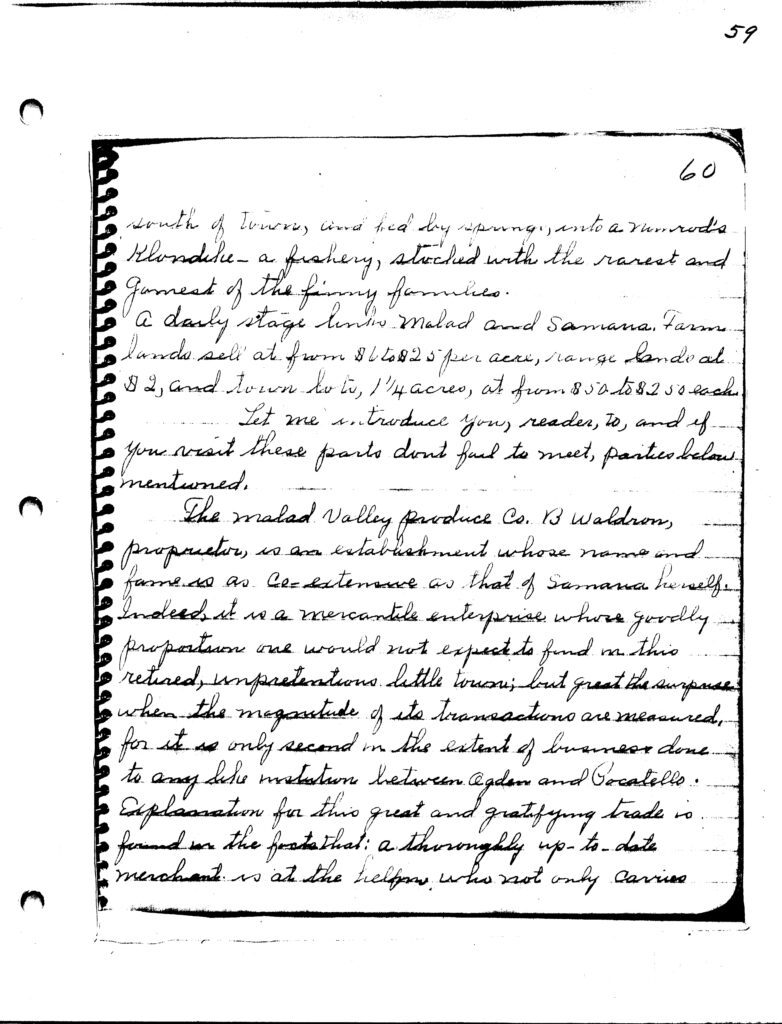 59
60
south of town, and fed by springs, into a nimrod's
Klondike - a fishery, stocked with the rarest and
Gamest of the finny families.
A daily stage links Malad and Samaria. Farm
lands sell at from $6 to $25 per acre, range lands at
$2, and town lots, 1 1/4 acres, at from $50 to $250 each.
Let me introduce you, reader, to, and if
you visit these parts dont fail to meet, parties below
mentioned.
The Malad Valley produce Co. B Waldron,
proprietor, is an establishment whose name and
fame is as Co-extensive as that of Samaria herself.
Indeed, it is a mercantile enterprise whose goodly
proportion one would not expect to find in this
retired, unpretentious little town; but great the surprise
when the magnitude of its transactions are measured,
for it is only second in the extent of business done
to any like institution between Ogden and Pocatello.
Explanation for this great and gratifying trade is
found in the facts that: a thoroughly up-to-date
merchant is at the helm, who not only carries